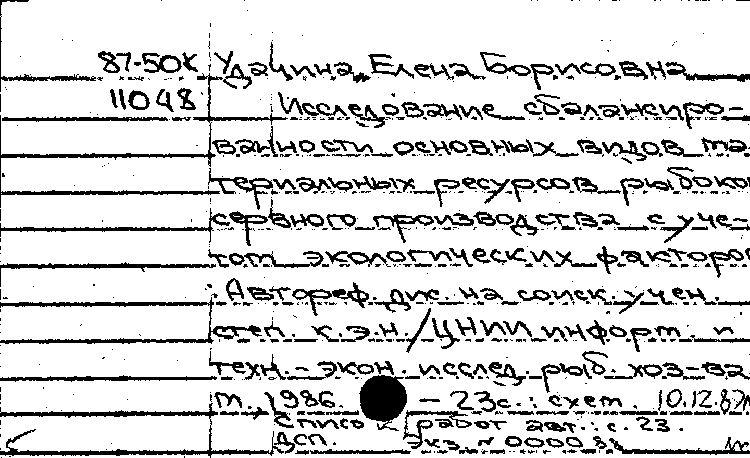 87-50К Удачина, Елена Борисовна
11048 Исследование сбалансиро-
ванности основных видов ма-
териальных ресурсов рыбокон
сервного производства с уче-
том экологических факторов
: Автореф. дис. на соиск. учен.
степ. к.э.н. / ЦНИИ информ. и
техн.-экон. исслед. рыб. хоз-ва
М., 1986. – 23с. : схем. 10.12.87
Список работ авт.: с. 23.
ДСП. Экз. N 000088